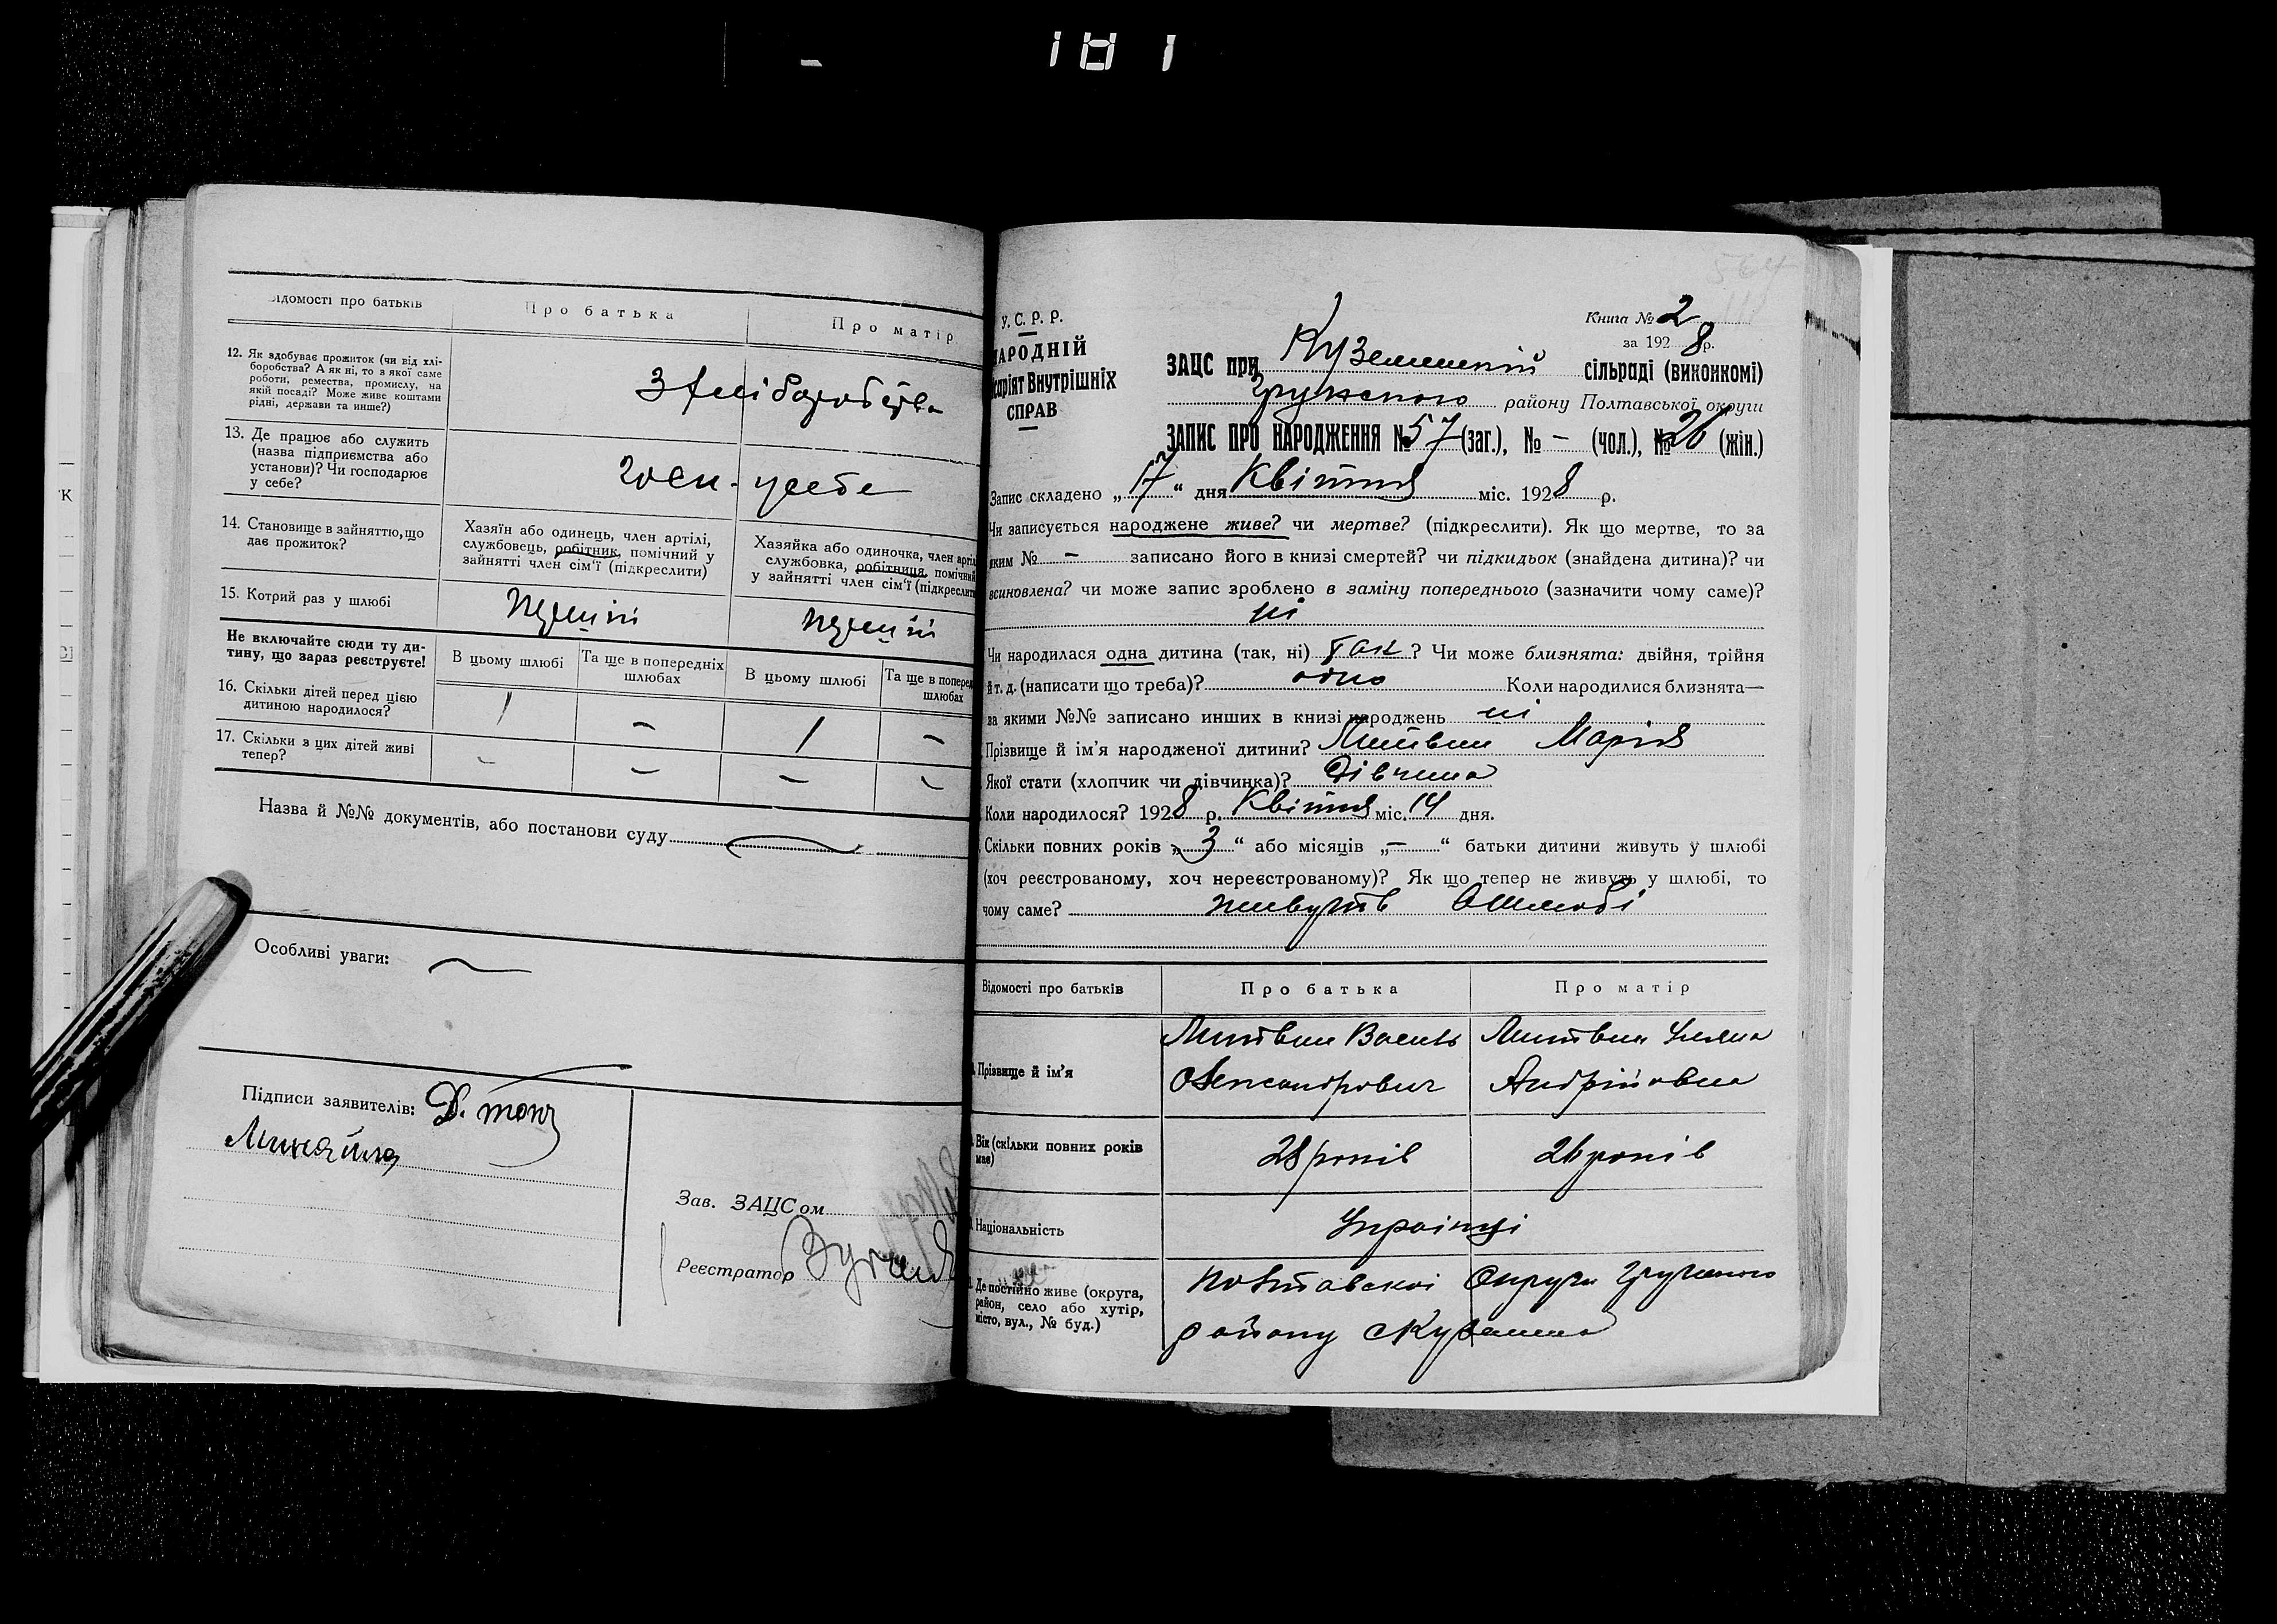 181
Відомості про батьків
Про батька
Про матір
12. Як здобуває прожиток (чи від хлі-
боробства? А як ні, то з якої саме
роботи, ремества, промислу, на
якій посаді? Може живе коштами
рідні, держави та инше?)
З хліборобства
13. Де працює або служить
(назва підприємства або
установи)? Чи господарює
у себе?
госп. у себе
14. Становище в зайняттю, що
дає прожиток?
Хазяїн або одинець, член артілі,
службовець, робітник, помічний у
зайнятті член сім'ї (підкреслити)
Хазяйка або одиночка, член артіл
службовка, робітниця, помічний
у зайнятті член сім'ї (підкреслит
15. Котрий раз у шлюбі
перший
перший
Не включайте сюди ту ди-
тину, що зараз реєструєте!
В цьому шлюбі
Та ще в попередніх
шлюбах
В цьому шлюбі
Та ще в поперед
шлюбах
16. Скільки дітей перед цією
дитиною народилося?
1 – 1 –
17. Скільки з цих дітей живі
тепер?
– – – –
Назва й №№ документів, або постанови суду
Особливі уваги:
Підписи заявителів:
Зав. ЗАЦСом
Реєстратор
У. С. Р. Р.
НАРОДНІЙ
Комісаріят Внутрішніх
СПРАВ
Книга № 2
за 1928 р.
ЗАЦС при Куземинській сільраді (виконкомі)
Грунського району Полтавської округи
ЗАПИС ПРО НАРОДЖЕННЯ № 57 (заг.), № – (чол.), № 26 (жін.)
Запис складено „17“ дня Квітня міс. 1928 р.
Чи записується народжене живе? чи мертве? (підкреслити). Як що мертве, то за
яким № – записано його в книзі смертей? чи підкидьок (знайдена дитина)? чи
всиновлена? чи може запис зроблено в заміну попереднього (зазначити чому саме)?
ні
Чи народилася одна дитина (так, ні) так? Чи може близнята: двійня, трійня
й т. д. (написати що треба)? одно Коли народилися близнята—
за якими №№ записано инших в книзі народжень ні
Прізвище й ім'я народженої дитини? Литвин Марія
Якої стати (хлопчик чи дівчинка)? Дівчина
Коли народилося? 1928 р. Квітня міс. 14 дня.
Скільки повних років „3“ або місяців „–“ батьки дитини живуть у шлюбі
(хоч реєстрованому, хоч нереєстрованому)? Як що тепер не живуть у шлюбі, то
чому саме? живуть
Відомості про батьків
Про батька
Про матір
Прізвище й ім'я
Литвин Василь
Олександрович
Литвин Уляна
Андрійовна
Вік (скільки повних років
має)
28 років
26 років
Національність
Українці
Де постійно живе (округа,
район, село або хутір,
місто, вул., № буд.)
Полтавської Округи Грунського
району